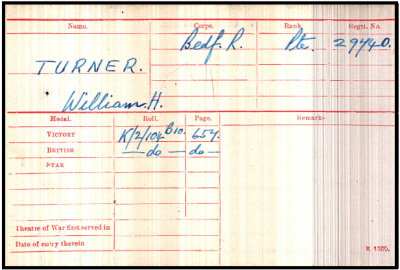 Name. Corps. Rank. Regtl. No.
TURNER. Bedf. R. Pte. 29440.
William. H.
Medal. Roll. Page. Remarks
VICTORY K/2/104 B10. 657.
BRITISH — do — do —
STAR
Theatre of War first served in
Date of entry therein
K 1380.